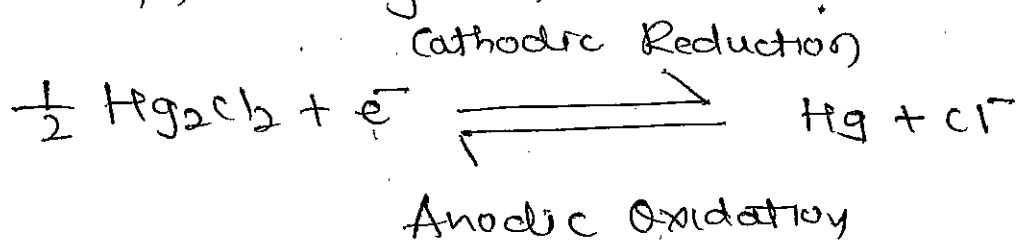 Cathodic Reduction
½ Hg₂Cl₂ + e⁻ ⇌ Hg + Cl⁻
Anodic Oxidation